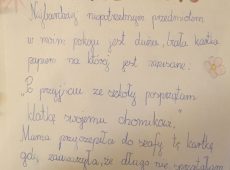 Najbardziej niepotrzebnym przedmiotem
w moim pokoju jest duża, biała kartka
papieru na której jest napisane:
"Po przyjściu ze szkoły posprzątam
klatkę swojemu chomikowi."
Mama przyczepiła do szafy tę kartkę
gdy zauważyła, że długo nie sprzątałam